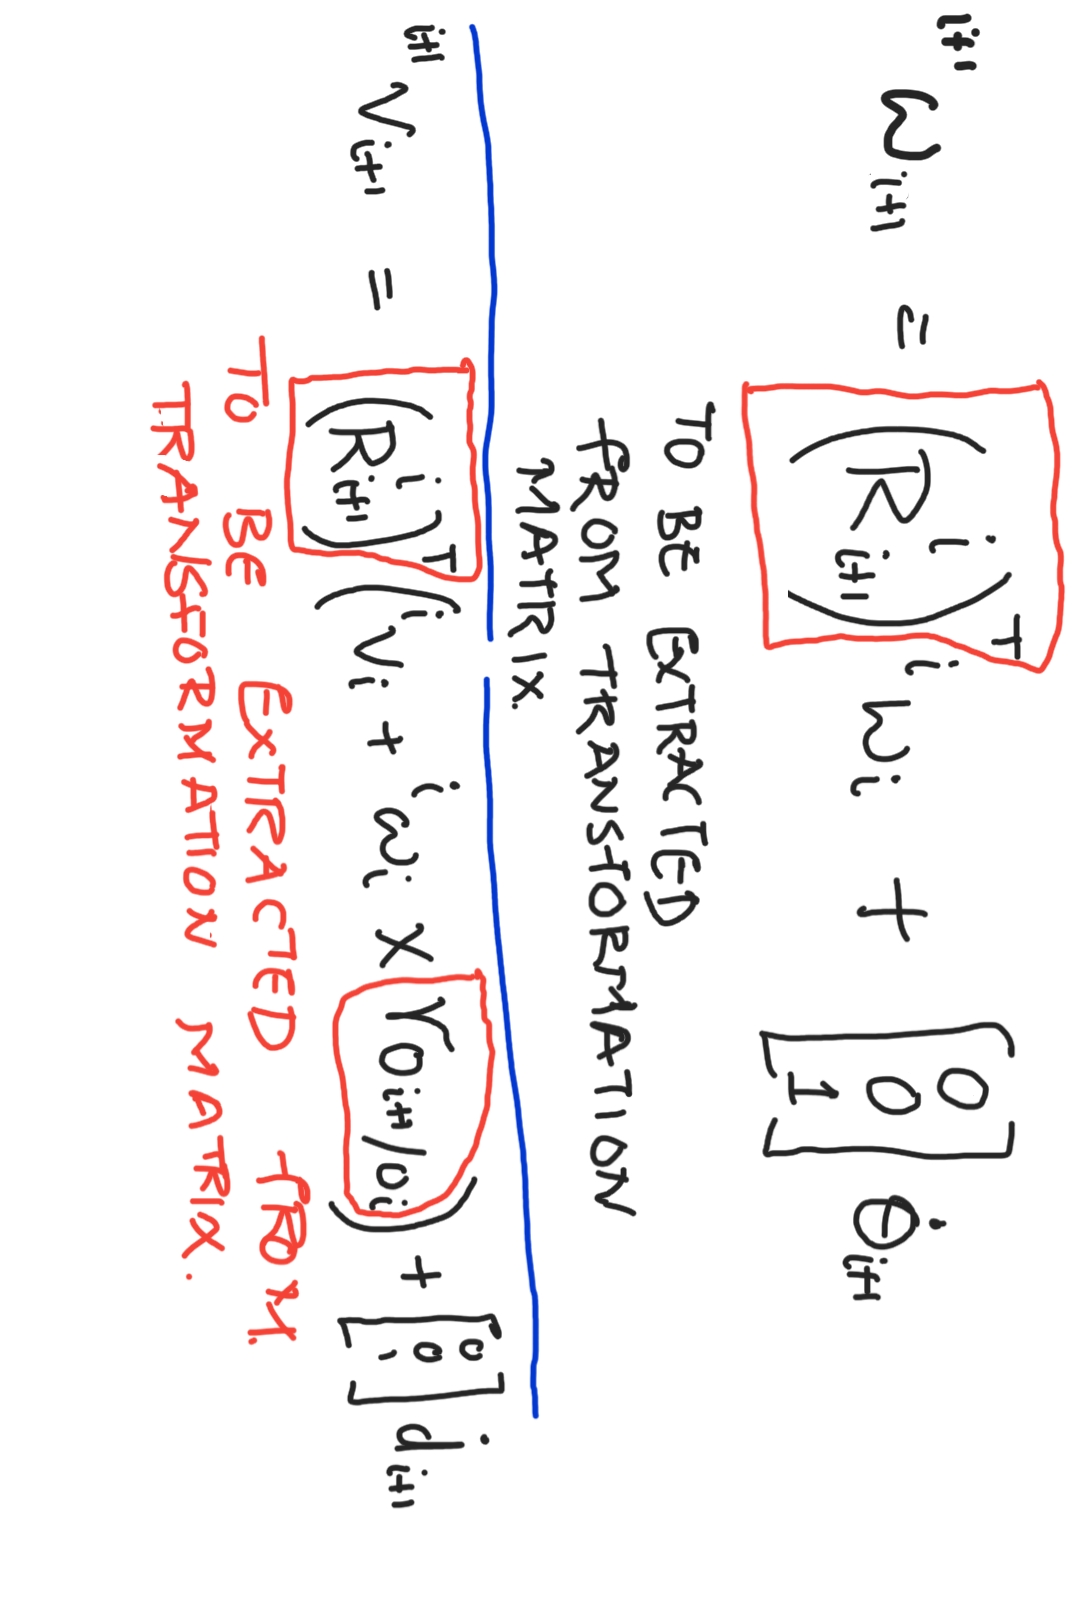 i+1 ω i+1 = (R i i+1)ᵀ i ω i + [0 0 1] θ̇ i+1
TO BE EXTRACTED
FROM TRANSFORMATION
MATRIX.
i+1 V i+1 = (R i i+1)ᵀ (i V i + i ω i × r O i+1 / O i) + [0 0 1] ḋ i+1
TO BE EXTRACTED FROM
TRANSFORMATION MATRIX.